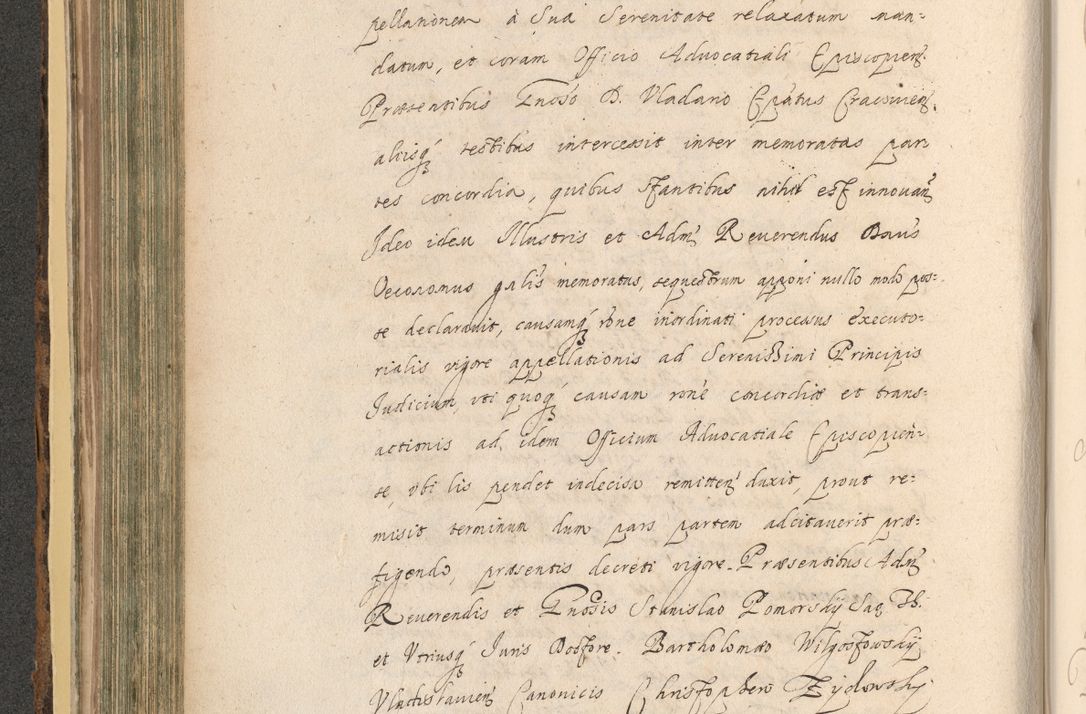 pellationem à Sua Serenitate relaxatum man-
datum, et coram Officio Advocatiali Episcopien.
Præsentibus Gnoso D. Vladario Epatus Cracovien.
aliisq́ testibus intercessit inter memoratas par
tes concordia, quibus stantibus nihil est innovan
Ideo idem Illustris et Adm Reuerendus Dnus
Oeconomus gnlis memoratus, sequestrum apponi nullo modo pos-
se declarauit, causamq́ rone inordinati processus executo-
rialis vigore appellationis ad Serenissimi Principis
Judicium, vti quoq́ causam rone concordiæ et trans-
actionis ad idem Officium Advocatiale Episcopien-
se, vbi lis pendet indecisa remitten duxit, prout re-
misit terminum dum pars partem adcitauerit præ-
figendo, præsentis decreti vigore. Præsentibus Adm
Reuerendis et Gnosis Stanislao Pomorsky Sac Th.
et Vtriusq́ Juris Doctore. Bartholomæo Wilgostowsky
Vladislauien Canonicis Christophero Zydowsky